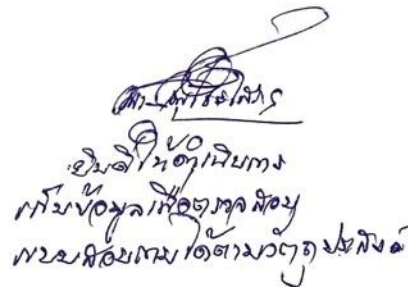 ยินดีให้ดำเนินการ
เก็บข้อมูลเพื่อตรวจสอบ
แบบสอบถามได้ตามวัตถุประสงค์